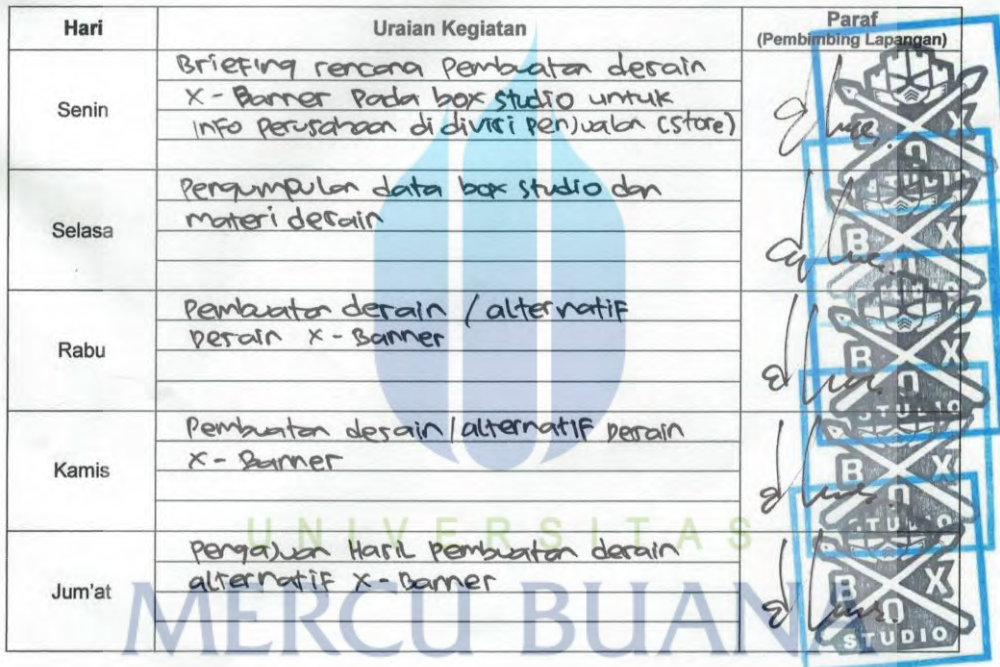 Hari Uraian Kegiatan Paraf
(Pembimbing Lapangan)
Senin
Briefing rencana Pembuatan desain
X-Banner Pada box studio untuk
info perusahaan di divisi penjualan (store)
Selasa
Pengumpulan data box studio dan
materi desain
Rabu
Pembuatan desain / alternatif
Desain X-Banner
Kamis
Pembuatan desain / alternatif Desain
X-Banner
Jum'at
Pengajuan Hasil pembuatan desain
alternatif X-Banner
UNIVERSITAS
MERCU BUANA
BOX
STUDIO